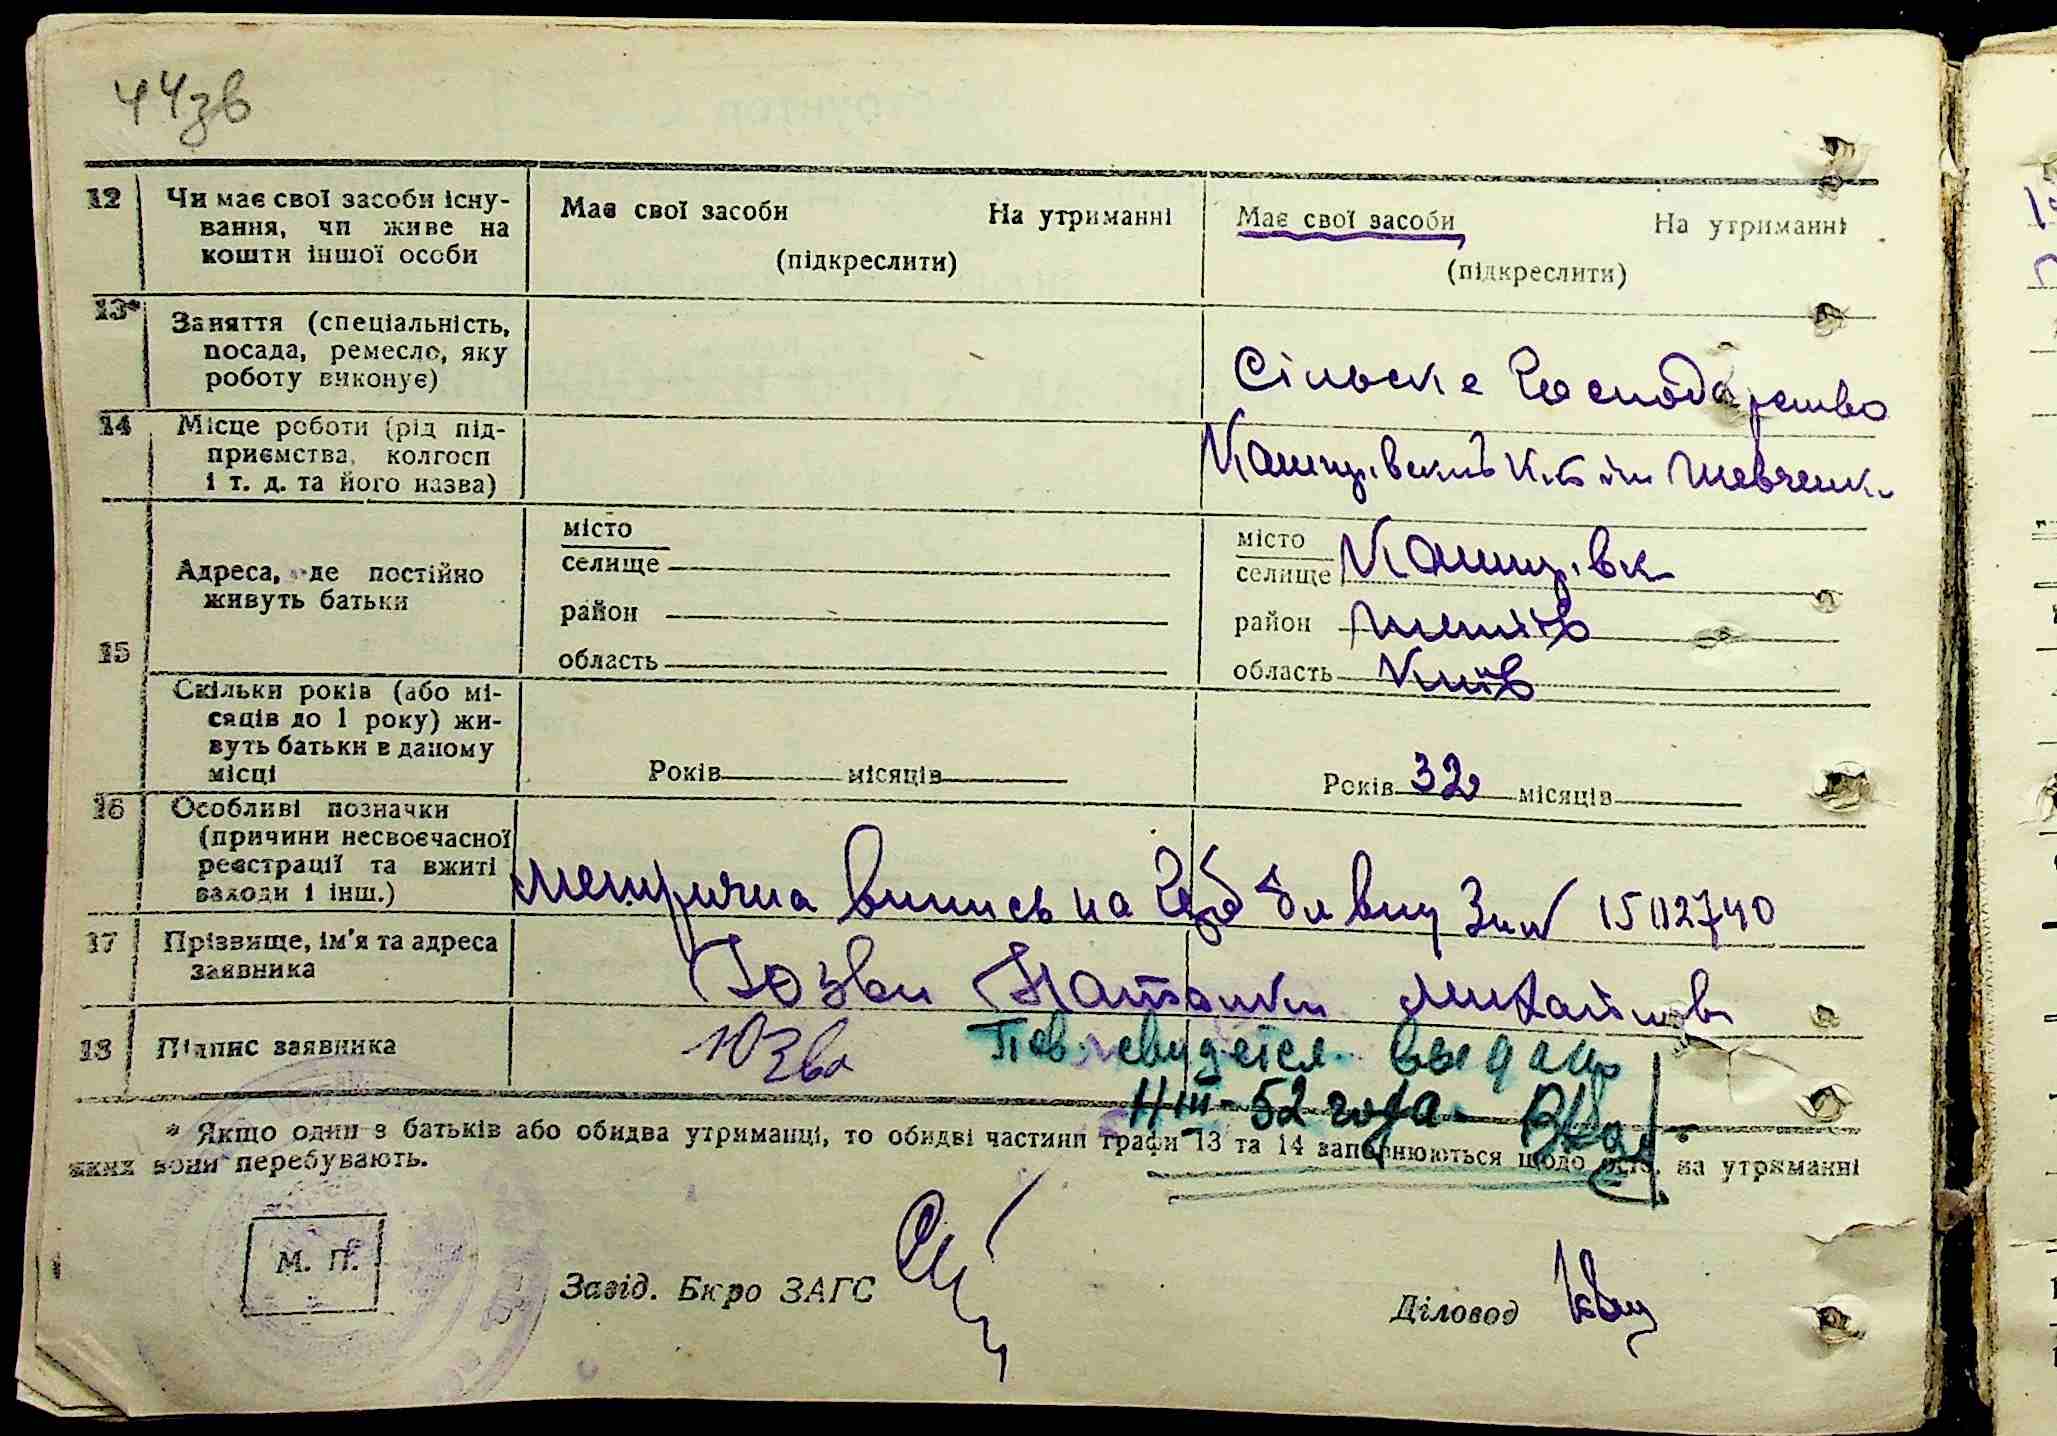 44зв
12 Чи має свої засоби існу-
вання, чи живе на
кошти іншої особи
Має свої засоби На утриманні
(підкреслити)
Має свої засоби На утриманні
(підкреслити)
13* Заняття (спеціальність,
посада, ремесло, яку
роботу виконує)
Сільське Господарство
14 Місце роботи (рід під-
приємства, колгосп
і т. д. та його назва)
15 Адреса, де постійно
живуть батьки
місто
селище
район
область
місто
селище
район
область Київ
Скільки років (або мі-
сяців до 1 року) жи-
вуть батьки в даному
місці
Років місяців
Років 32 місяців
16 Особливі позначки
(причини несвоєчасної
реєстрації та вжиті
заходи і інш.)
Метрична выпись на 1502740
17 Прізвище, ім'я та адреса
заявника
18 Підпис заявника
Юзва
Пов. свидетел. выдано
III-52 года.
* Якщо один з батьків або обидва утриманці, то обидві частини графи 13 та 14 заповнюються щодо на утриманні
яких вони перебувають.
М. П.
Завід. Бюро ЗАГС
Діловод